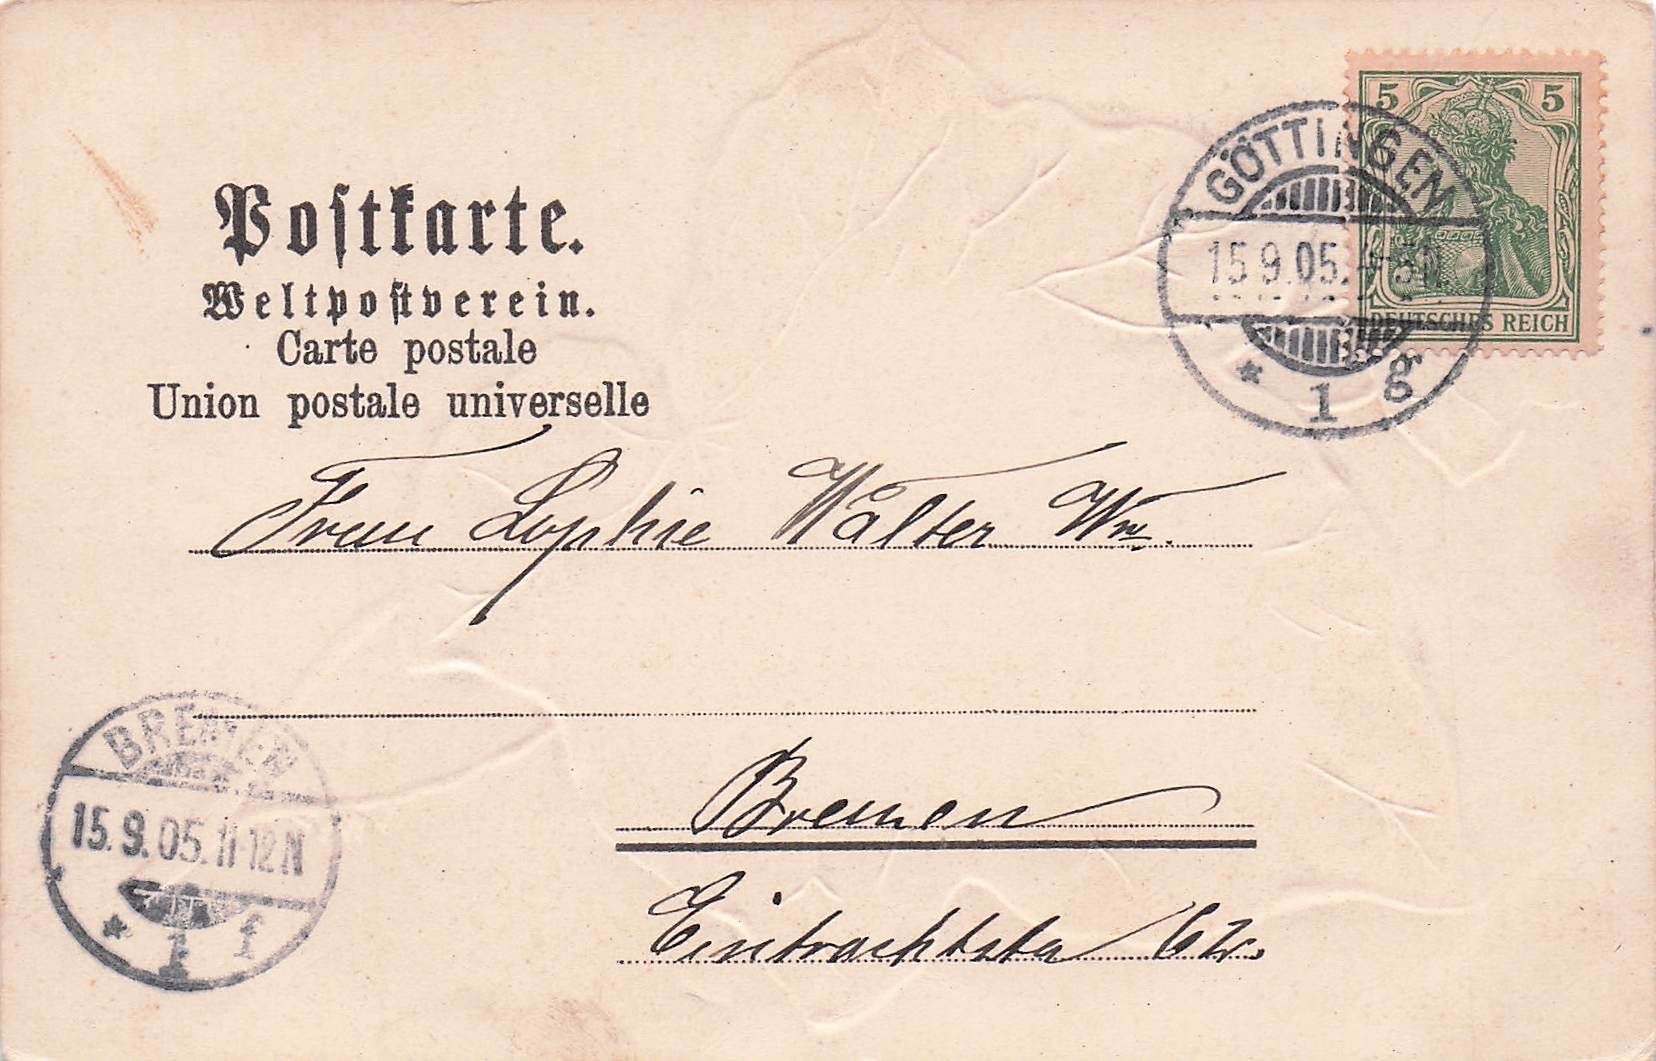 Postkarte.
Weltpostverein.
Carte postale
Union postale universelle
5 5
DEUTSCHES REICH
GÖTTINGEN
15.9.05.
* 1 g
Frau Sophie Walter Wm.
BREMEN
15.9.05.11-12N
* 1 f
Bremen